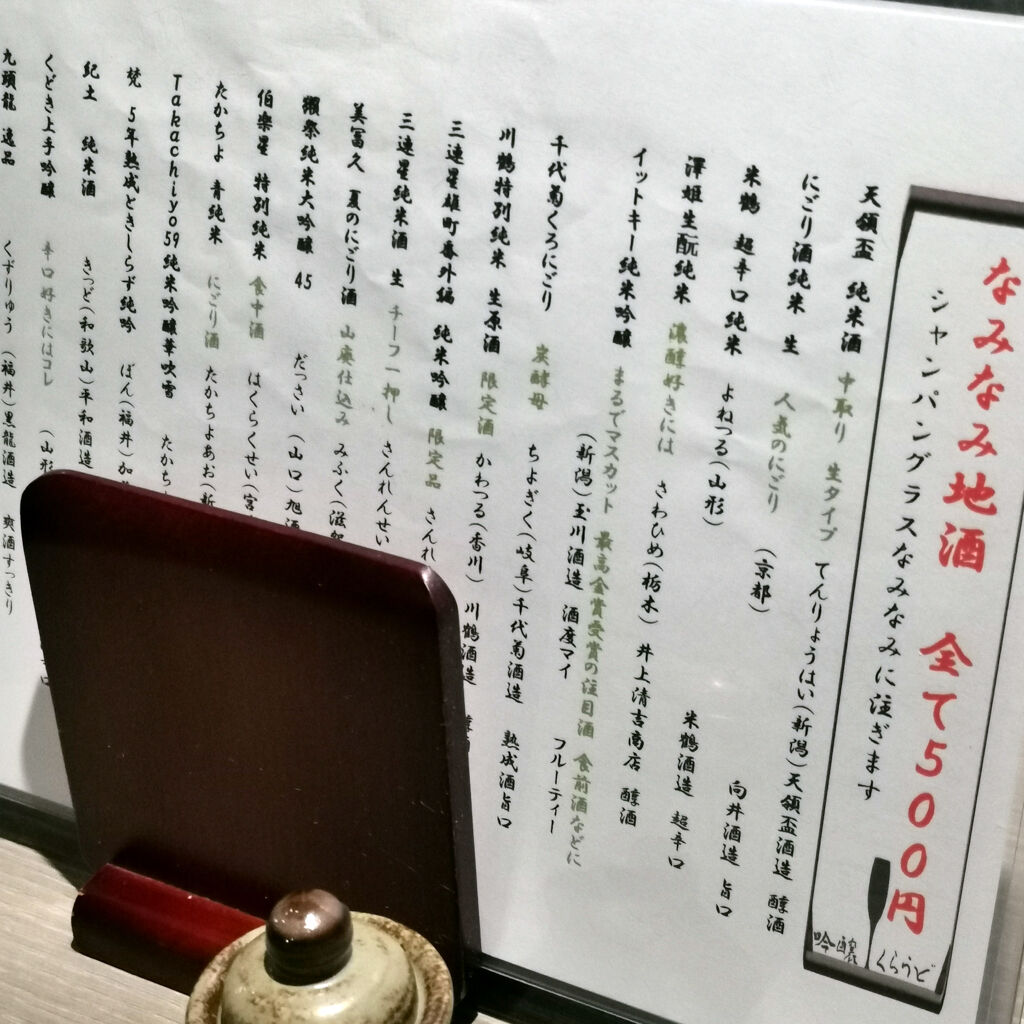 なみなみ地酒 全て500円
シャンパングラスなみなみに注ぎます
吟醸 くらうど
天領盃 純米酒 中取り 生タイプ てんりょうはい(新潟)天領盃酒造 醇酒
にごり酒純米 生 人気のにごり (京都) 向井酒造 旨口
米鶴 超辛口純米 よねつる(山形) 米鶴酒造 超辛口
澤姫生酛純米 濃醇好きには さわひめ(栃木) 井上清吉商店 醇酒
イットキー純米吟醸 まるでマスカット 最高金賞受賞の注目酒 食前酒などに
(新潟)玉川酒造 酒度マイ フルーティー
千代菊くろにごり 炭酵母 ちよぎく(岐阜)千代菊酒造 熟成酒旨口
川鶴特別純米 生原酒 限定酒 かわつる(香川) 川鶴酒造
三連星雄町番外編 純米吟醸 限定品 さんれ
三連星純米酒 生 チーフ一押し さんれんせい
美冨久 夏のにごり酒 山廃仕込み みふく(滋賀
獺祭純米大吟醸 45 だっさい (山口)旭酒
伯楽星 特別純米 食中酒 はくらくせい(宮
たかちよ 青純米 にごり酒 たかちよあお(新
Takachiyo59純米吟醸華吹雪 たかち
梵 5年熟成ときしらず純吟 ぼん(福井)加
紀土 純米酒 きっど(和歌山)平和酒造
くどき上手吟醸 辛口好きにはコレ (山形
九頭龍 逸品 くずりゅう (福井)黒龍酒造 爽酒すっきり